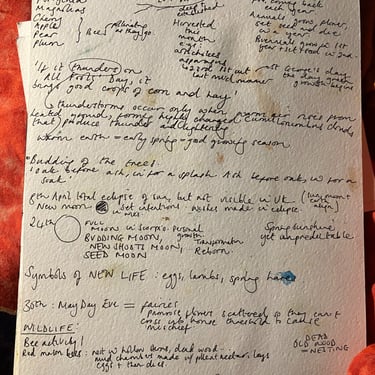 Magnolias
Cherry
Apple
Pear
Plum
Bees
pollinating as they go
Harvested this month
eggs
artichokes
asparagus
Annuals grow, flower, set seed and die in a year
Biennials
'If it thunders on
All Fools Day, it
brings good crops of corn and hay'
→ thunderstorms occur only when warm air rises from
heated ground, forming highly charged cumulonimbus clouds
that produce thunder and lightning
Warm earth = early spring = good growing season
*Budding of the trees:
'oak before ash, in for a splash. Ash before oak, in for a
soak'
8th April total eclipse of sun, but not visible in UK
New moon
set intentions
wishes made in eclipse
24th
FULL
moon in scorpio. personal
BUDDING MOON, growth
NEW SHOOTS MOON,
Transformation
SEED MOON
Reborn.
Spring sunshine
yet unpredictable
Symbols of NEW LIFE: eggs, lambs, spring hare
30th: May Day Eve = fairies
primrose flowers scattered so they can't
cross into house threshold to cause
mischief
WILDLIFE:
Bee activity!
Red mason bees: nest in hollow stems, dead wood...
mud chambers made w pollen + nectar, lays
eggs + then dies.
DEAD
OLD WOOD
= NESTING